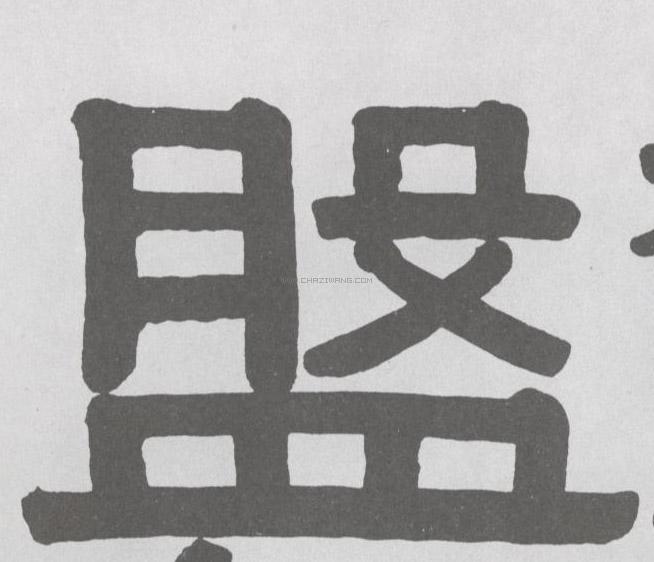 盤
WWW.CHAZIWANG.COM